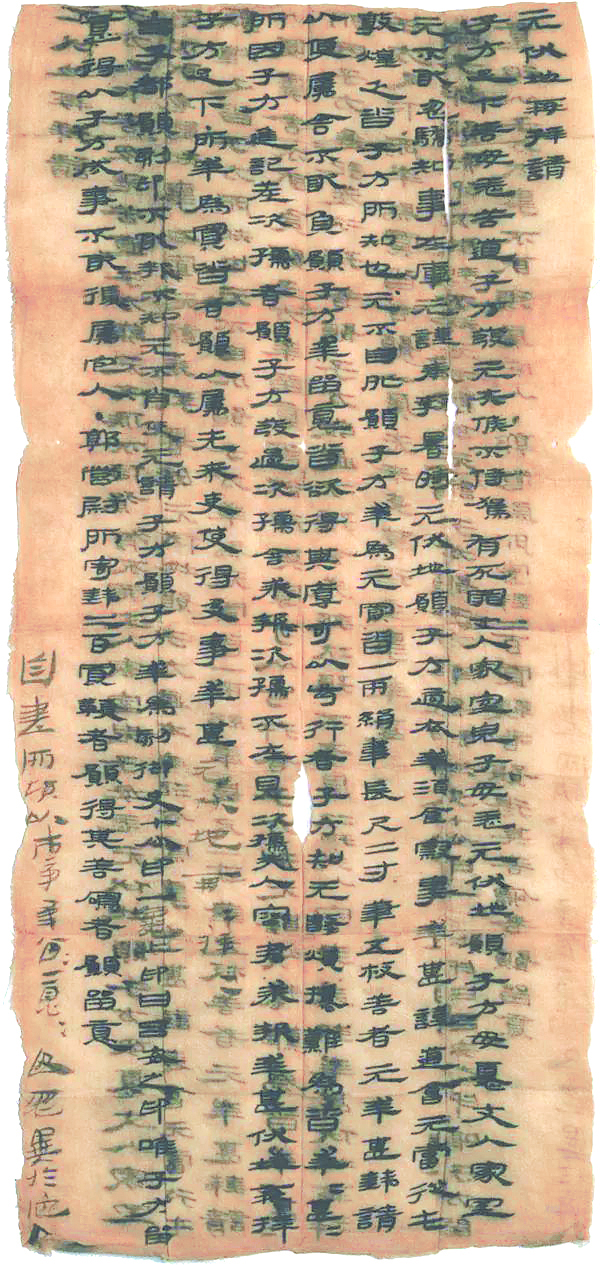 元伏地再拜請
子方足下善毋恙苦道子方發元失候不侍駕有死罪丈人家室兒子毋恙元伏地願子方毋憂丈人家室
元不敢忽驕知事在庫元謹奉教暑時元伏地願子方適衣幸酒食察事幸甚謹道會元當從屯
敦煌乏沓子方所知也元不自外願子方幸為元買沓一兩絹韋長尺二寸筆五枚善者元幸甚錢請
以便屬舍不敢負願子方幸留意沓欲得其厚可以步行者子方知元數煩擾難為沓幸=甚=
所因子方進記差次孺者願子方發過次孺舍求報次孺不在見次孺夫人容君求報幸甚伏地再拜
子方足下·所幸為買沓者願以屬先來吏使得及事幸甚元伏地再拜再拜
·呂子都願刻印不敢報不知元不肖使元請子方願子方幸為刻御史七分印一龜上印曰呂安之印唯子方留
意得以子方成事不敢復屬它人·郭營尉所寄錢二百買鞭者願得其善鳴者願留意
自書所願以市事幸留=意=毋忽異於它人